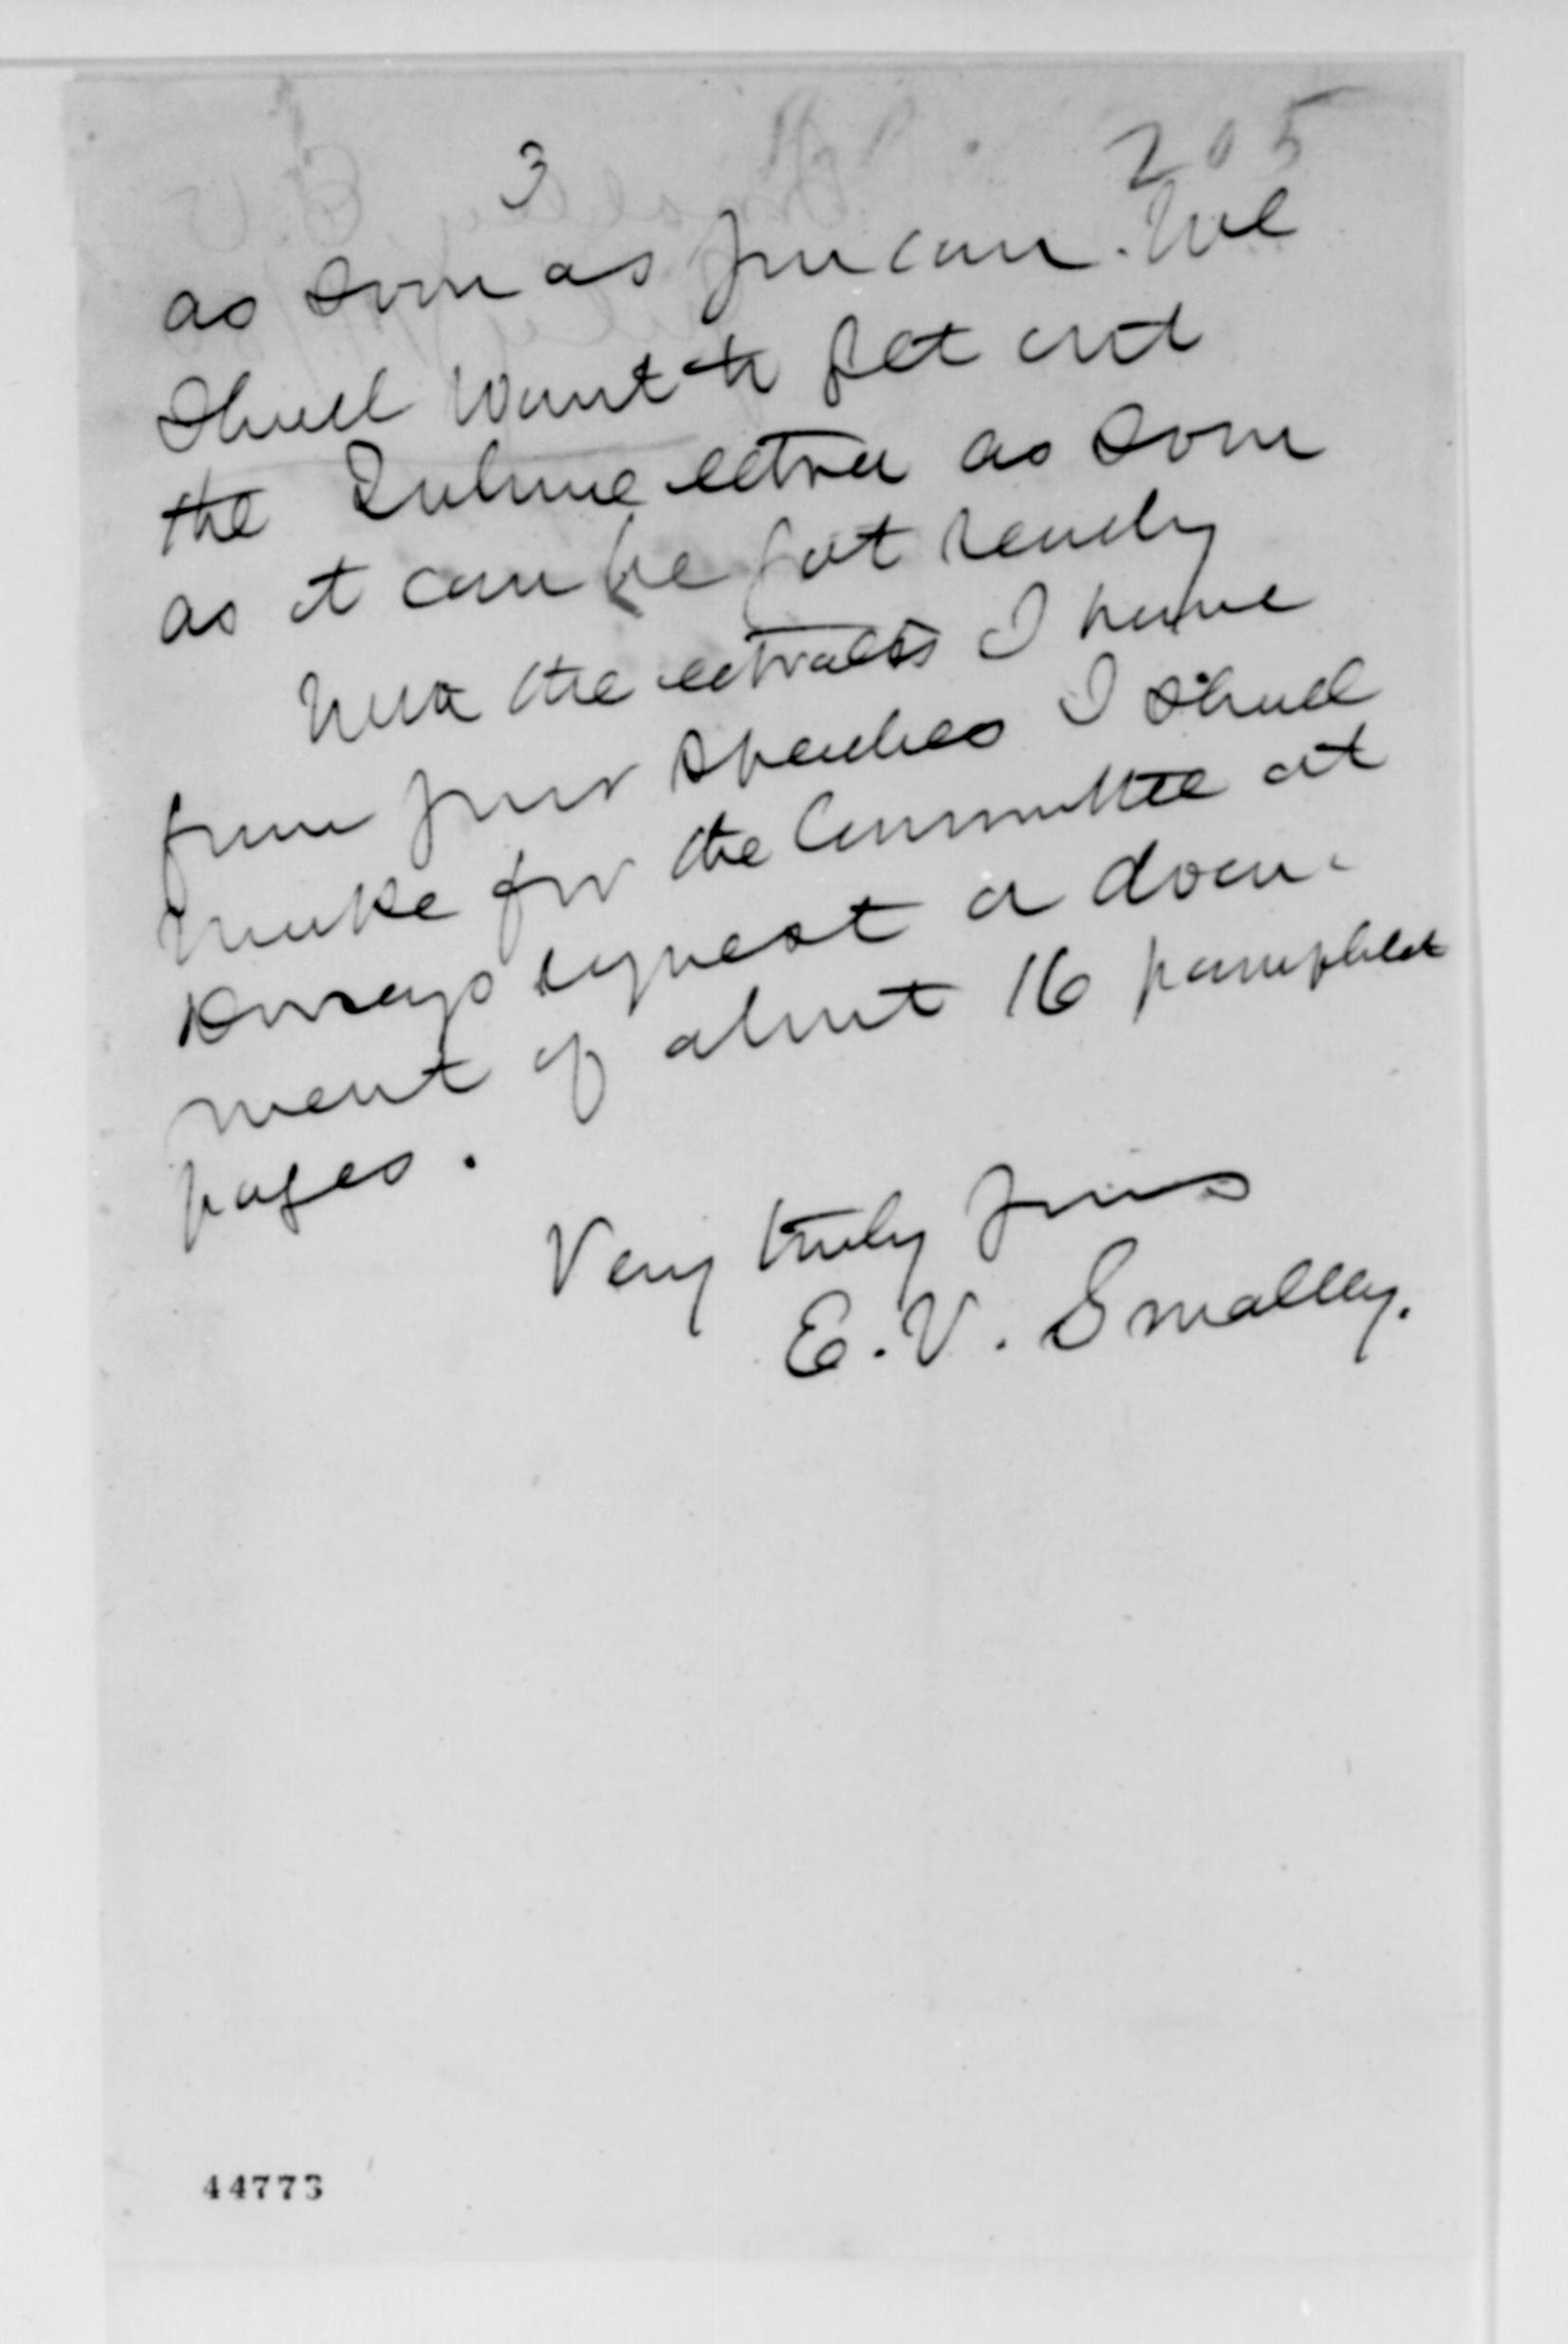 3
205
as soon as you can. We
shall want to get out
the Tribune extra as soon
as it can be got ready
With the extracts I have
from your speeches I shall
make for the Committee at
request a docu-
ment of about 16 pamphlet
pages.
Very truly yours
E. V. Smalley.
44773